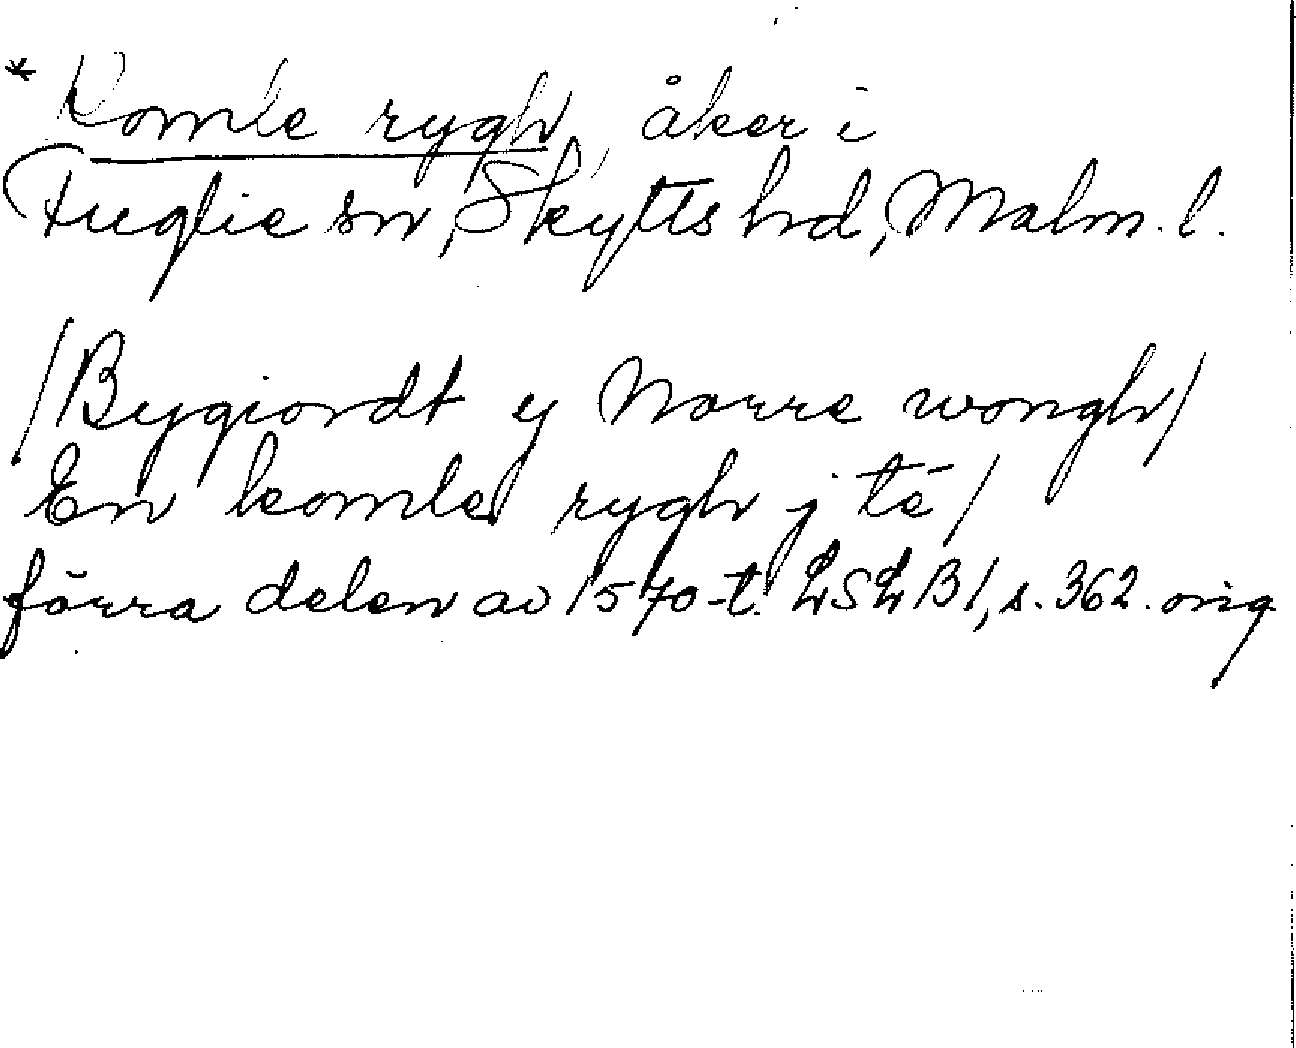 * Komle rygh, åker i
Fuglie sn, Skytts hd, Malm. l.
/Bygiordt y Norre wongh/
En komle rygh j té/
förra delen av 1570-t. LSLB1, s. 362. orig